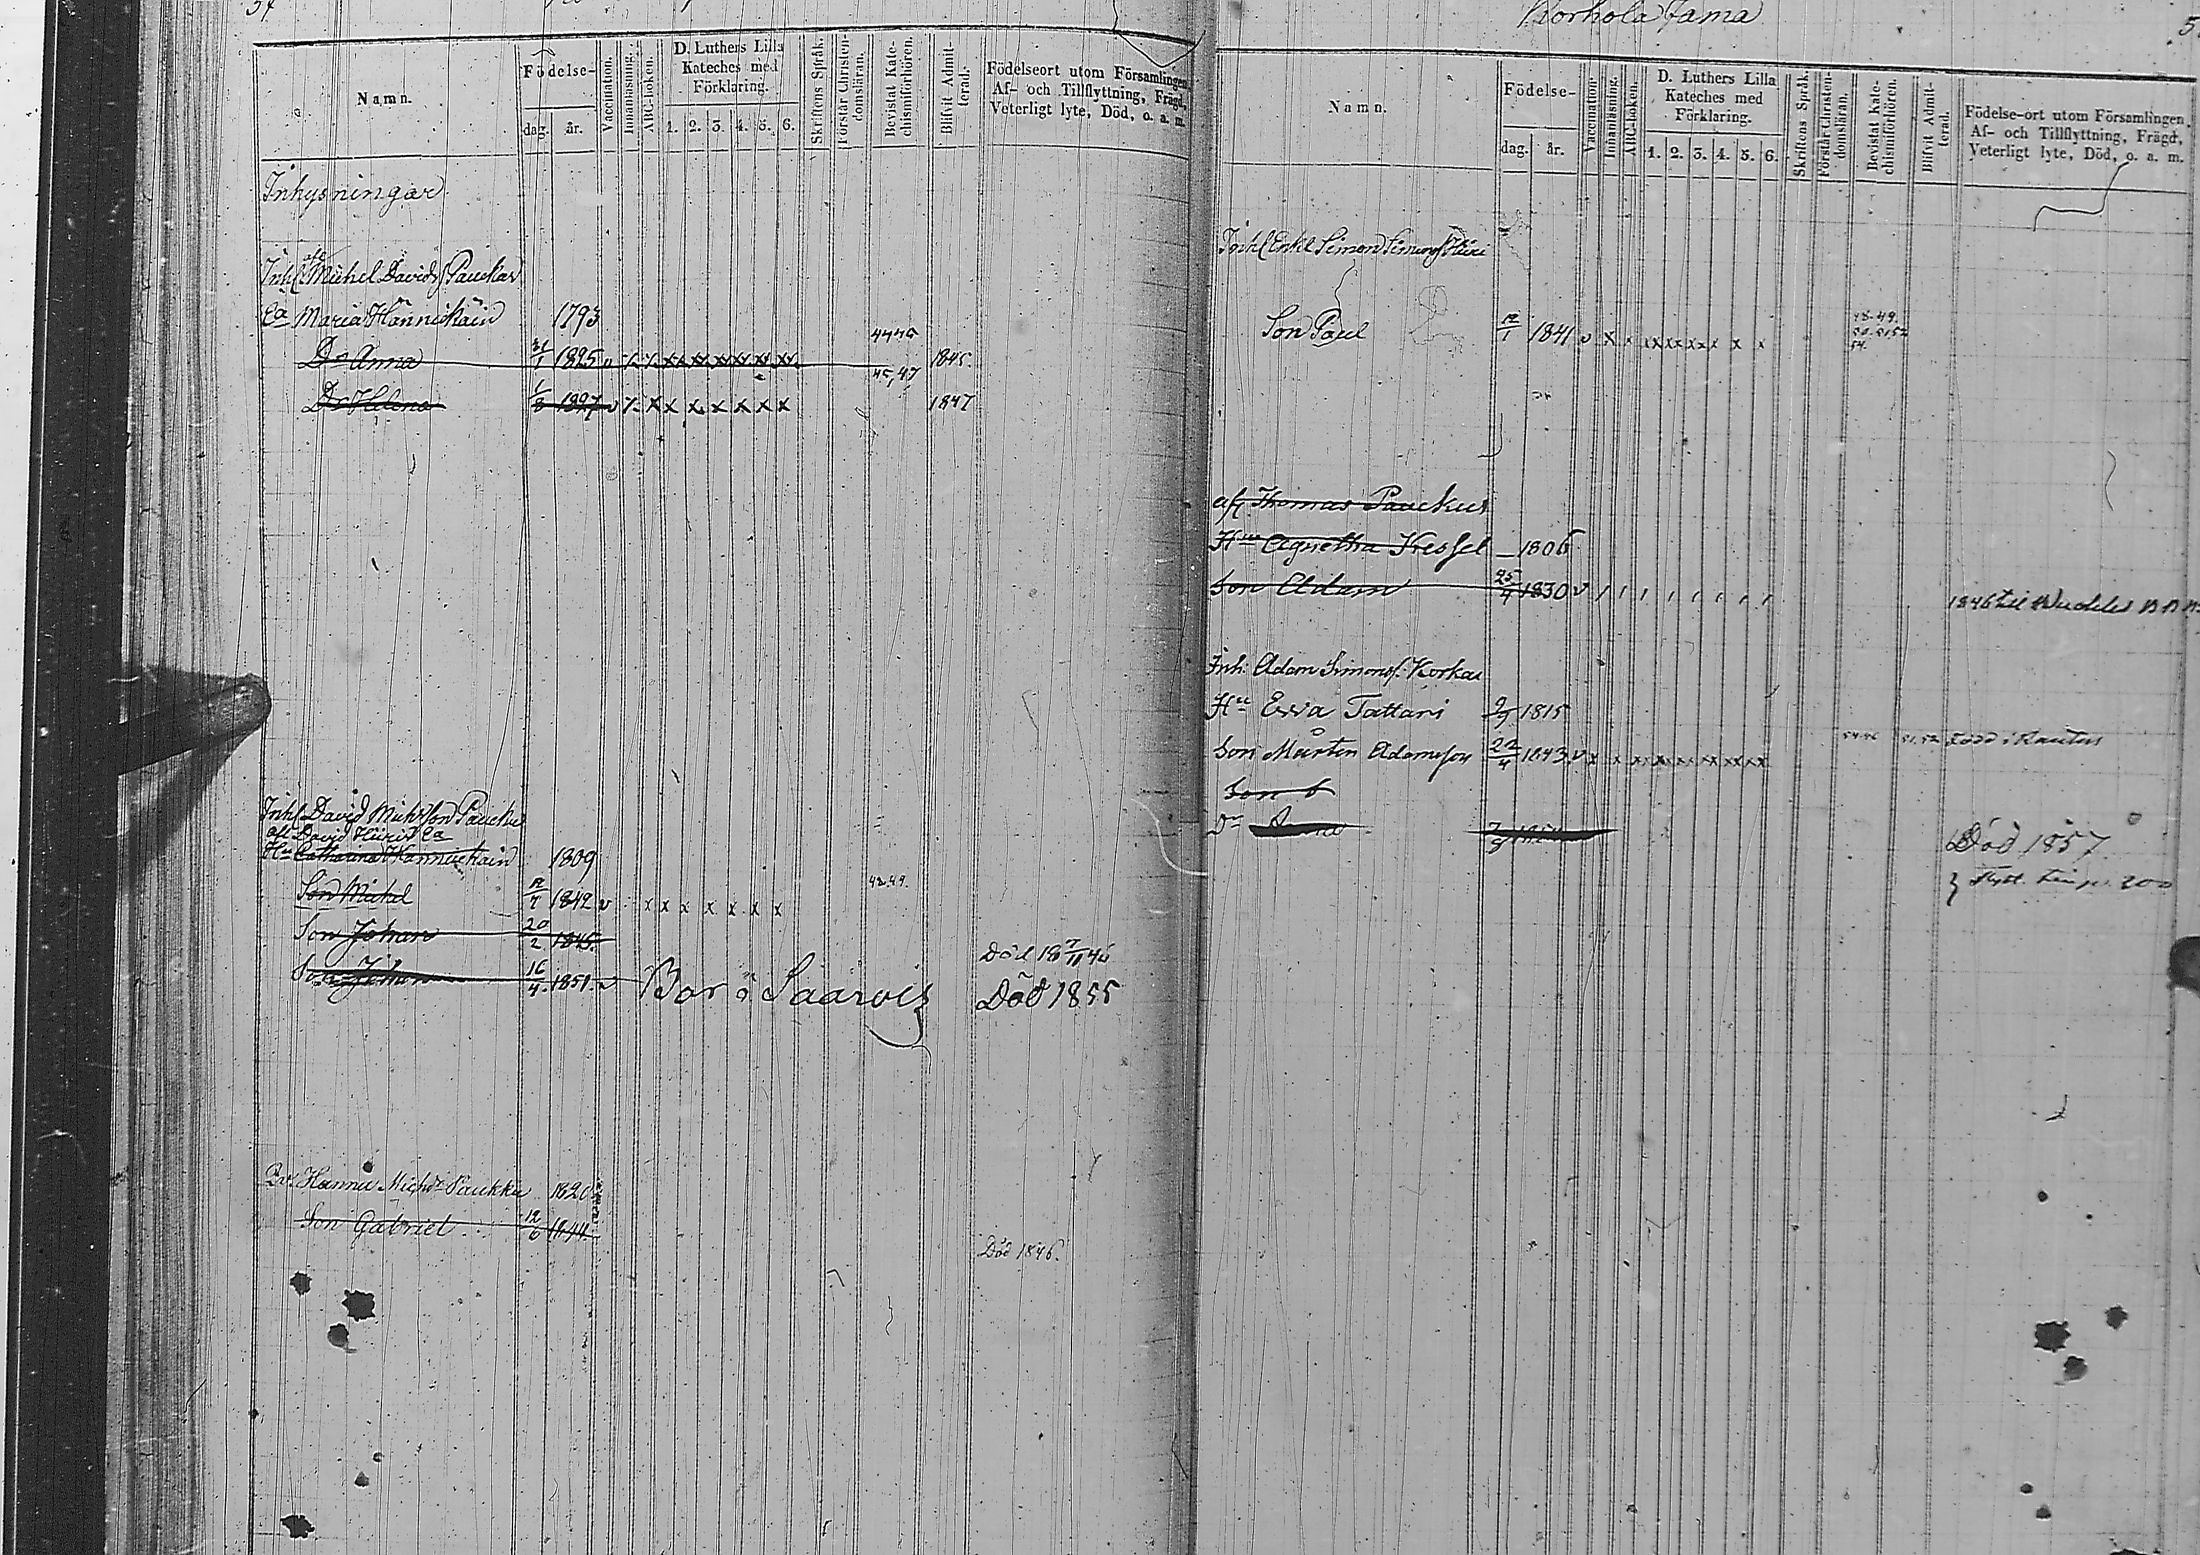 57
Namn.
Födelse-
dag.
år.
Vaccination.
Innanläsning.
ABC-boken.
D. Luthers Lilla
Kateches med
Förklaring.
1. 2. 3. 4. 5. 6.
Skriftens Språk.
Förstår Christen-
domsläran.
Bevistat Kate-
chismiförhören.
Blifvit Admit-
terad.
Födelseort utom Församlingen
Af- och Tillflyttning, Frägd,
Veterligt lyte, Död, o. a. m.
Inhysningar
Inh. Michel Davids Pauckar
Ea Maria Hännikäin 1793
Dr Anna 31/1 1825 v x x xx xx xx xx xx xx 1845.
Dr Helena 1/8 1827 v x x x x x x x 45, 47 1847
Inh. David Michelson Paucku
afl. David Hüiris Ea
Hu Catharina Hännikäin 1809
Son Michel 12/7 1842 v x x x x x x x 48 49.
Son Johan 20/2 1845. Död 18 7/11 46
Son Johan 16/4 1851. v Bor i Saarvis Död 1855
Hannu Michs Paukku 1820
Son Gabriel 12/6 1844. Död 1846.
Korhola Jama
5
Namn.
Födelse-
dag.
år.
Vaccination.
Innanläsning.
ABC-boken.
D. Luthers Lilla
Kateches med
Förklaring.
1. 2. 3. 4. 5. 6.
Skriftens Språk.
Förstår Christen-
domsläran.
Bevistat Kate-
chismiförhören.
Blifvit Admit-
terad.
Födelse-ort utom Församlingen.
Af- och Tillflyttning, Frägd,
Veterligt lyte, Död, o. a. m.
Inh. Enkl. Simon Simons Hüiri
Son Paul 12/1 1841 v x x xx xx xx x x x 48-49.
54.
afl. Thomas Pauckus
Hu Agnetha Kessel 1806
Son Adam 25/4 1830 v 1846 till
Inh. Adam Simons. Korkas
Hu Ewa Tattari 9/7 1815
Son Mårten Adamsson 22/4 1843. v x x xx xx xx xx xx Född i Rautus
Son
Dr Anna Död 1857
Flytt.